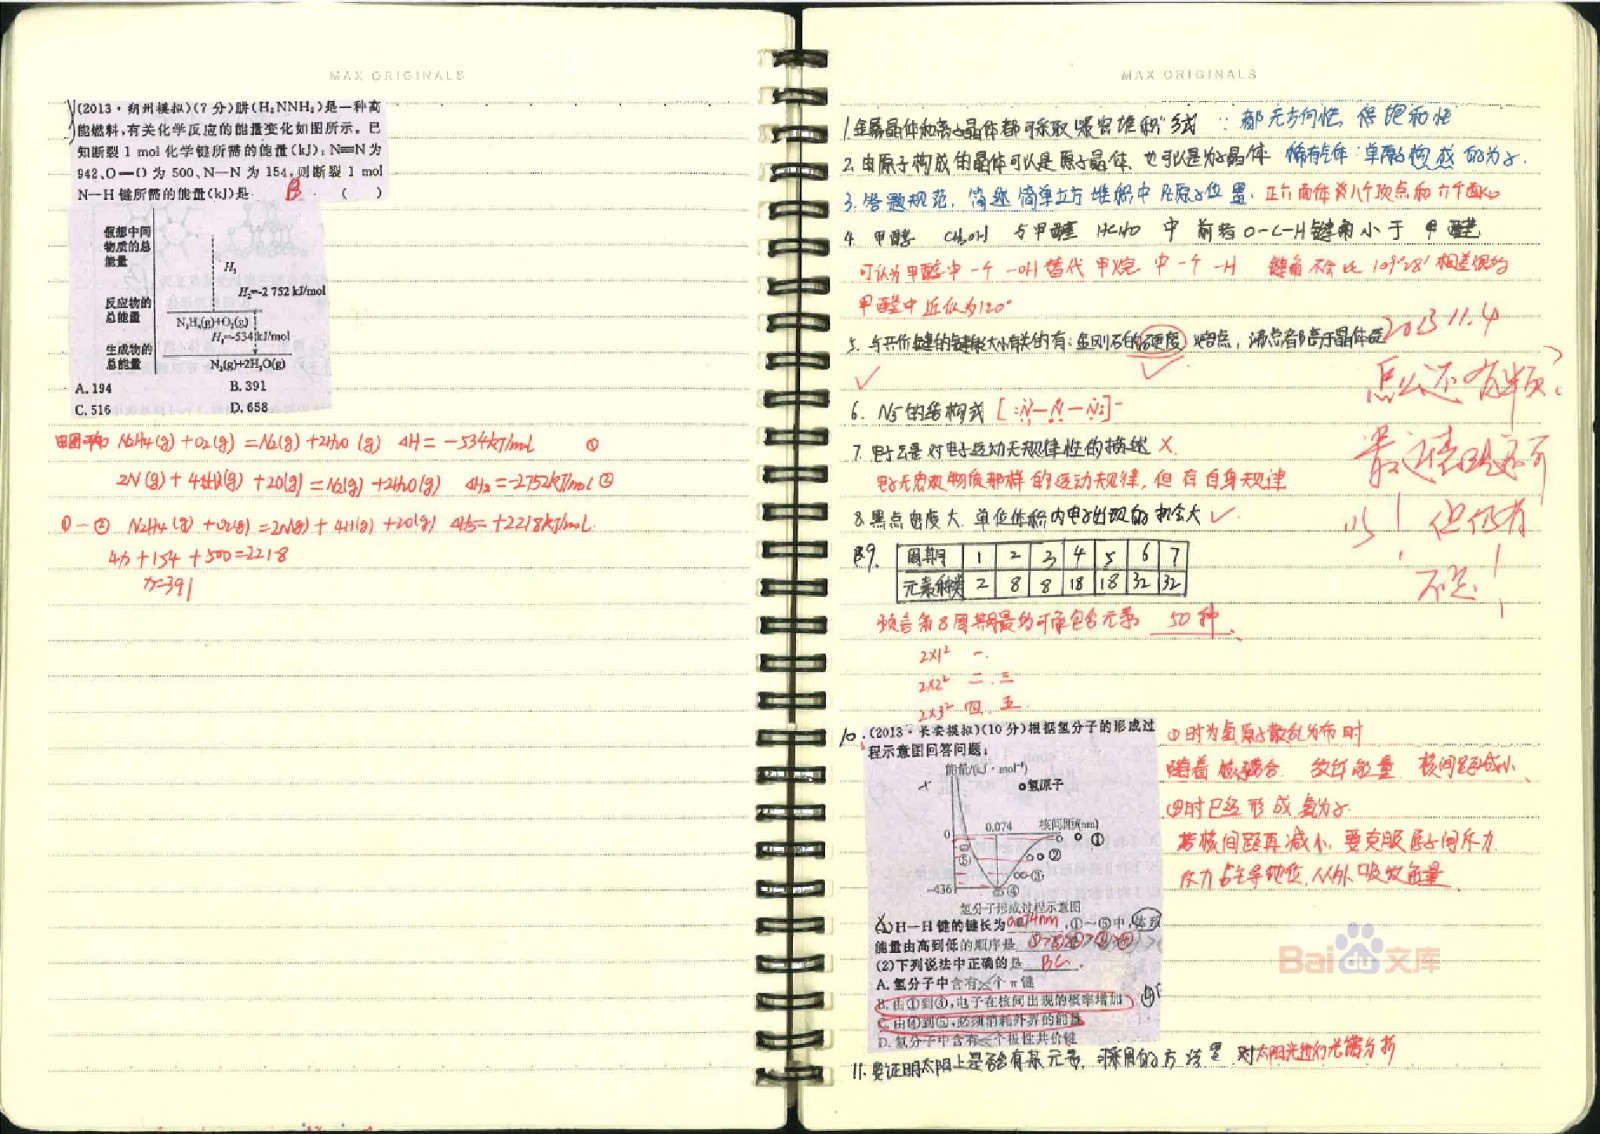 MAX ORIGINALS
(2013·朔州模拟)(7分)肼(H2NNH2)是一种高
能燃料,有关化学反应的能量变化如图所示。已
知断裂1 mol化学键所需的能量(kJ):N≡N为
942、O—O为500、N—N为154,则断裂1 mol
N—H键所需的能量(kJ)是 B ( )
假想中间
物质的总
能量
H3
H2=-2 752 kJ/mol
反应物的
总能量
N2H4(g)+O2(g)
H1=-534 kJ/mol
生成物的
总能量
N2(g)+2H2O(g)
A. 194 B. 391
C. 516 D. 658
由图可知 N2H4(g)+O2(g)=N2(g)+2H2O(g) ΔH=-534kJ/mol ①
2N(g)+4H(g)+2O(g)=N2(g)+2H2O(g) ΔH2=-2752kJ/mol ②
①-② N2H4(g)+O2(g)=2N(g)+4H(g)+2O(g) ΔH3=+2218kJ/mol.
4x+154+500=2218
x=391
MAX ORIGINALS
1.金属晶体和离子晶体都可采取"紧密堆积"方式 ∵都无方向性,饱和性
2.由原子构成的晶体可以是原子晶体,也可以是分子晶体 稀有气体:单原子构成的分子.
3.答题规范,简述简单立方堆积中原子位置,正六面体为八个顶点和六个面心
4. 甲醇 CH3OH 与甲醛 HCHO 中 前者O-C-H键角小于 甲醛
可认为甲醇中一个-OH替代甲烷中一个-H 键角不会比109°28′相差很多
甲醛中近似为120°
5. 与共价键的键能大小有关的有:金刚石的硬度 熔点,沸点都高于晶体硅
2013 11.4
怎么还有频?
6. N5的结构式
最近 还可
7.电子云是对电子运动无规律性的描述 ×
电子无宏观物质那样的运动规律,但有自身规律
以! 但仍有
8.黑点密度大,单位体积内电子出现的机会大 ✓
不足!
9. 周期 1 2 3 4 5 6 7
元素种类 2 8 8 18 18 32 32
预言第8周期最多可能包含元素 50种
2×1² 一.
2×2² 二.三
2×3² 四.五
10.(2013·长安模拟)(10分)根据氢分子的形成过
程示意图回答问题:
能量/(kJ·mol⁻¹)
氢原子
0 0.074 核间距(nm)
①
⑤ ②
③
-436 ④
氢分子形成过程示意图
①时为氢原子散乱分布时
随着核靠合 放能量 核间距减小、
④时已经形成氢分子
若核间距再减小,要克服原子间斥力
斥力占主导地位,从外吸收能量
(1)H—H键的键长为 0.074nm ,①~⑤中,体系
能量由高到低的顺序是
(2)下列说法中正确的是 BC .
A. 氢分子中含有一个π键
B. 由①到④,电子在核间出现的概率增加
C. 由④到⑤,必须消耗外界的能量
D. 氢分子中含有一个极性共价键
11.要证明太阳上是否含有某元素,可采用的方法是 对太阳光进行光谱分析
Baidu文库